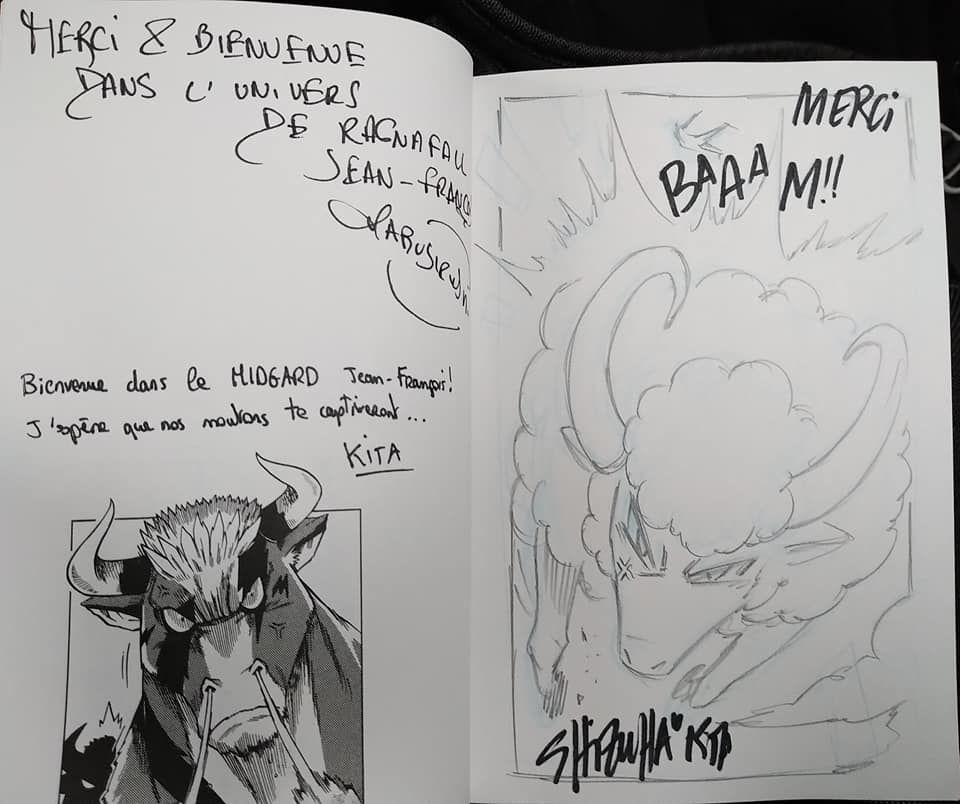 MERCI & BIENVENUE
DANS L'UNIVERS
DE RAGNAFALL
JEAN-FRANÇOIS
Bienvenue dans le MIDGARD Jean-François!
J'espère que nos moutons te captiveront...
KITA
MERCI
BAAAM!!
SHIZUHA KITA